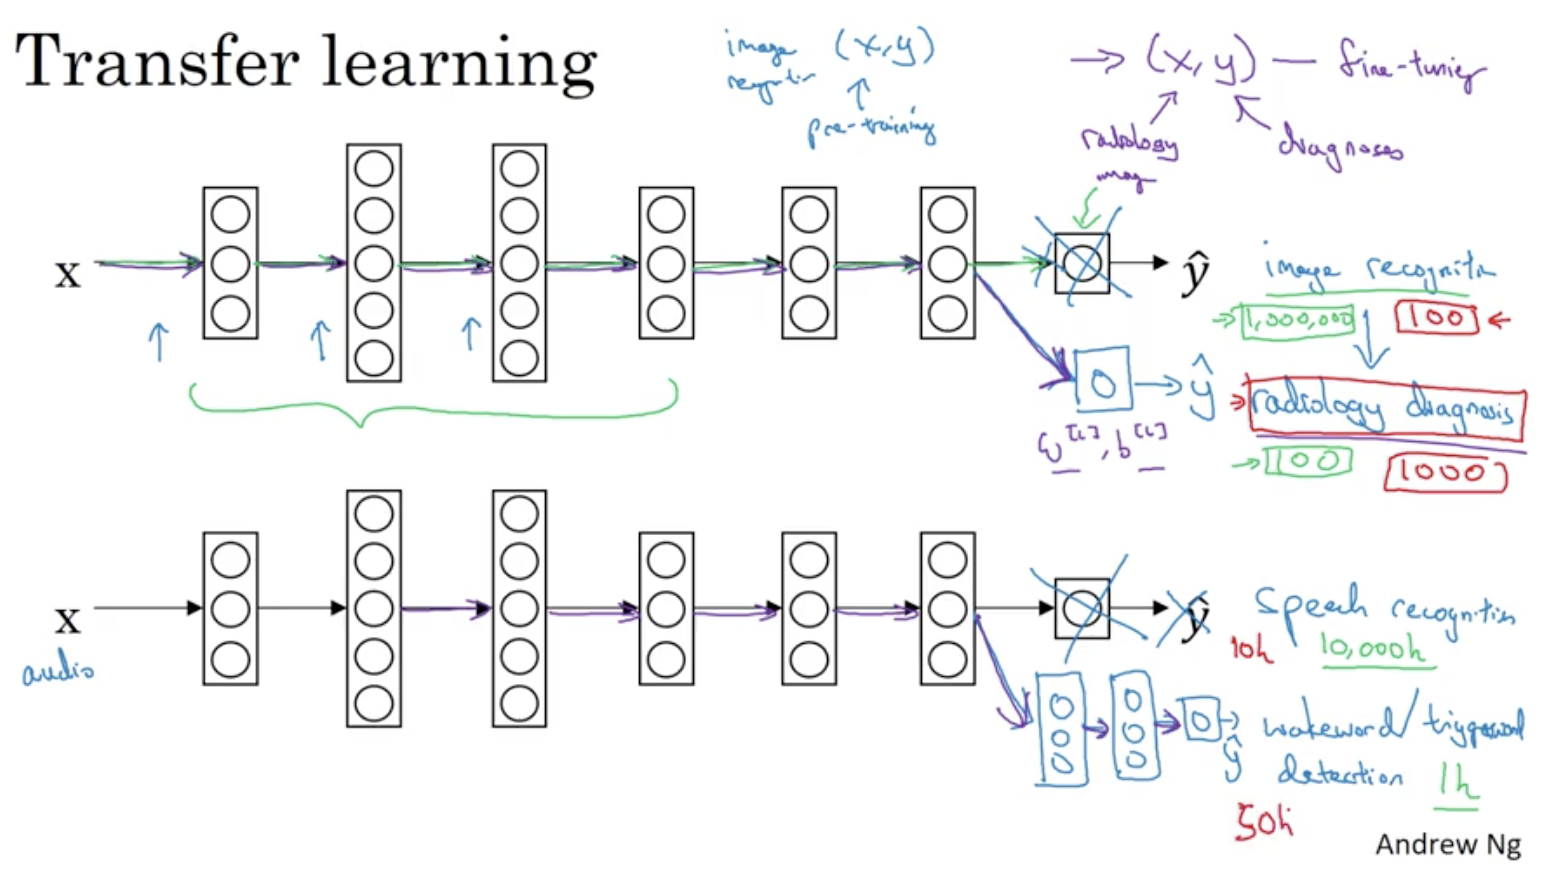 Transfer learning
image (x,y)
recognition
pre-training
→ (x,y) — fine-tuning
radiology
image
diagnoses
x
ŷ
image recognition
→ 1,000,000 100 ←
ŷ
radiology diagnosis
w[L], b[L]
→ 100 1000
x
audio
ŷ
Speech recognition
10h 10,000h
ŷ
wakeword/triggerword
detection 1h
50h
Andrew Ng